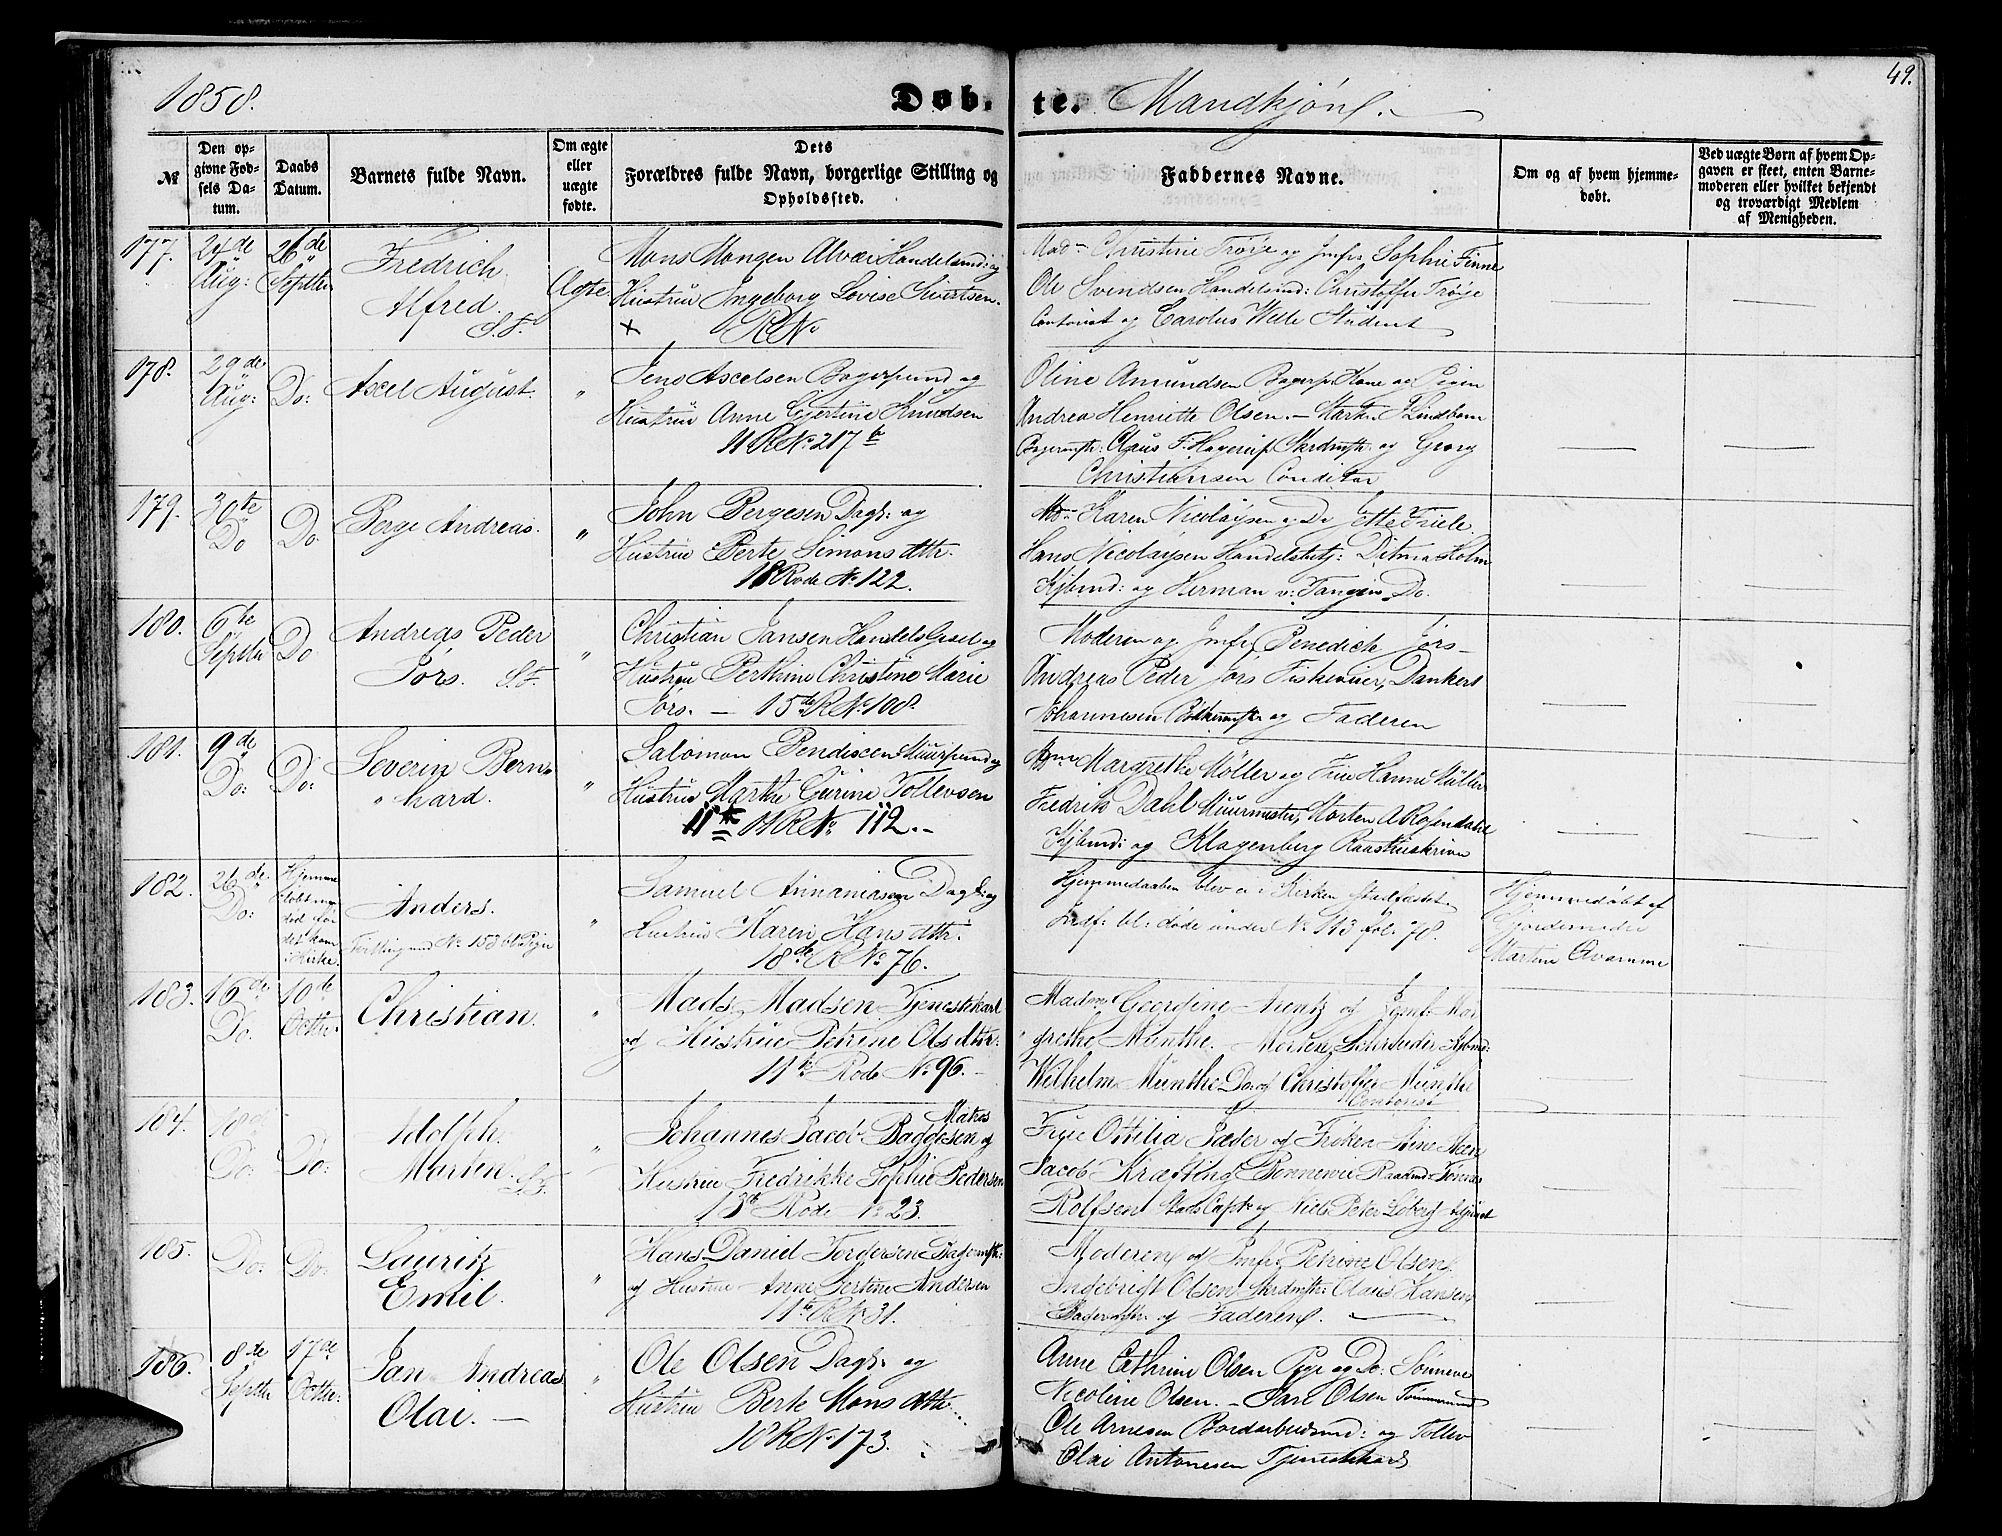 1858.
Døb-
te. Mandkjøn.
49.
№
Den op-
givne Fød-
sels Da-
tum.
Daabs
Datum.
Barnets fulde Navn.
Om ægte
eller
uægte
fødte.
Dets
Forældres fulde Navn, borgerlige Stilling og
Opholdssted.
Faddernes Navne.
Om og af hvem hjemme-
døbt.
Ved uægte Børn af hvem Op-
gaven er skeet, enten Barne-
moderen eller hvilket bekjendt
og troværdigt Medlem
af Menigheden.
177.
24de
Aug:
26de
Septbr
Fredrich
Alfred.
S.F.
Ægte
Mons Mongen Alvæ Handelsmd: og
Hustru Ingeborg Lovise Sivertsen.
Mad= Christine Trøye og Jmfr Sophie Finne
Ole Svendsen Handelsmd: Christoffer Trøye
Contorist og Carolus Welle Student
178.
29de
Aug:
Do:
Axel August.
"
Jens Axelsen Bagersvend og
Hustru Anne Gjertine Knudsen
11 R No 217 b
Oline Amundsen Bagersv Kone og Pigen
Andrea Henriette Olsen. Lindbom
Bagermstr: Claus F. Hagerup Skrdmstr og Georg
Christiansen Conditor
179.
30te
Do
Do
Berge Andreas.
"
John Bergesen Dagk: og
Hustru Berte Simons dttr.
18 Rode No 122.
Md= Karen Nicolaysen og Do Jette Friele
Hans Nicolaysen Handelsbetj: Ditmar Holm
Kjbmd: og Herman v: Tangen Do.
180.
6te
Septbr
Do
Andreas Peder
Jørs. S.F.
"
Christian Jansen Handels Gesel og
Hustru Berthine Christine Marie
Jørs. — 15de R No 108.
Moderen og Jmfr Benedich Jørs
Andreas Peder Jørs Fiskeveier, Dankert
Johannesen Bødkermstr og Faderen
181.
9de
Do:
Do:
Severin Bern-
hard.
"
Salomon Bendixen Muursvend og
Hustru Marthe Gurine Tollevsen
11te R No 112.
Margrethe Møller og Frue Hanne Müller
Fredrik Dahl Muurmester, Morten A Rosendahl
Kjbmd: og Klagenberg
182.
26de
Do:
Hjemme
døbt men
død før
det kom
i Kirke.
Anders.
Tvilling med No 153 bl: Piger
"
Samuel Annaniasen Dagk: og
Hustru Karen Hans dttr.
18de R No 76.
Hjemmedaaben blev ei i Kirken stadfæstet.
Indf: bl: døde under No 143 fol. 78.
Hjemmedøbt af
Gjordemoder
Martine Avamme
183.
16de
Do:
10de
Octbr.
Christian.
"
Mads Madsen Tjenestekarl
og Hustrue Petrine Ols dttr:
11te Rode No 96.
Madm Georgine Mentz og Jomf: Mar-
grethe Münthe. Morten Schrøder Kjbmd:
Wilhelm Münthe Do. og Christoffer Münthe
Contorist
184.
18de
Do:
Do:
Adolph
Morten.
S.F.
"
Matros
Johannes Jacob Baggesen og
Hustrue Fredrikke Sophie Pedersen
13de Rode No 23.
Frue Ottilia Sæder og Frøken Stine Meen
Jacob Kræfting Bonnevie Raadmd Tønnes
Rolfsen Stads Capt: og Niels Peter Loberg Adjunct
185.
Do:
Do:
Lauritz
Emil.
"
Hans Daniel Tordersen Bagermstr:
og Hustrue Anne Bertine Andersen
11te R No 31.
Moderen og Jmfr Petrine Olsen
Ingebrigt Olsen Skrdmstr: Claus Hansen
Bagermstr og Faderen.
186.
8de
Septbr
17de
Octbr.
Jan Andreas
Olai.
"
Ole Olsen Dagk: og
Hustru Berte Mons dttr
18 R No 173.
Anne Cathrine Olsen Pige og Do: Sønneve
Nicoline Olsen. — Jarl Olsen Tømmermd
Ole Arnesen Bordarbeidsmd: og Tollev
Olai Antonesen Tjenestekarl